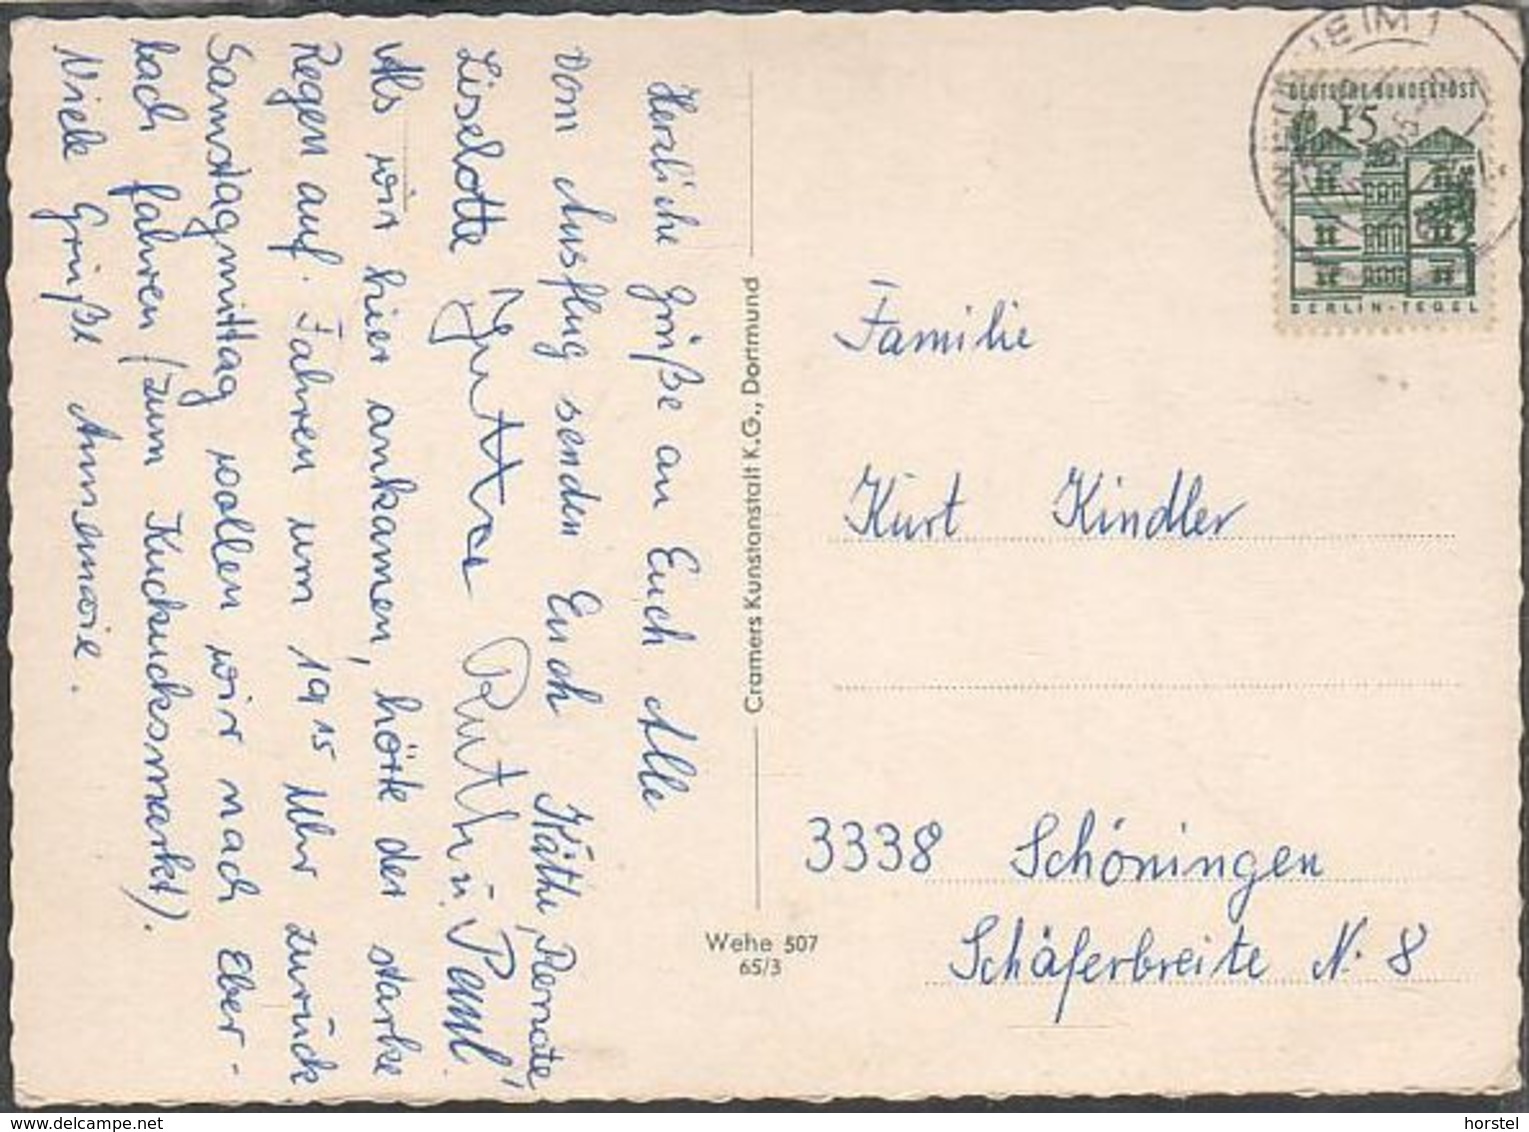 Herzliche Grüße an Euch Alle
vom Ausflug senden Euch Käthe, Renate
Liselotte Jutta Ruth u. Paul
Als wir hier ankamen, hörte der starke
Regen auf. Fahren um 19 15 Uhr zurück
Samstagmittag wollen wir nach Eber-
bach fahren (zum Kuckucksmarkt).
Viele Grüße Annemarie.
Cramers Kunstanstalt K.G., Dortmund
Wehe 507
65/3
HEIM 1
DEUTSCHE BUNDESPOST
15
BERLIN-TEGEL
Familie
Kurt Kindler
3338 Schöningen
Schäferbreite N. 8
www.delcampe.net
horstel